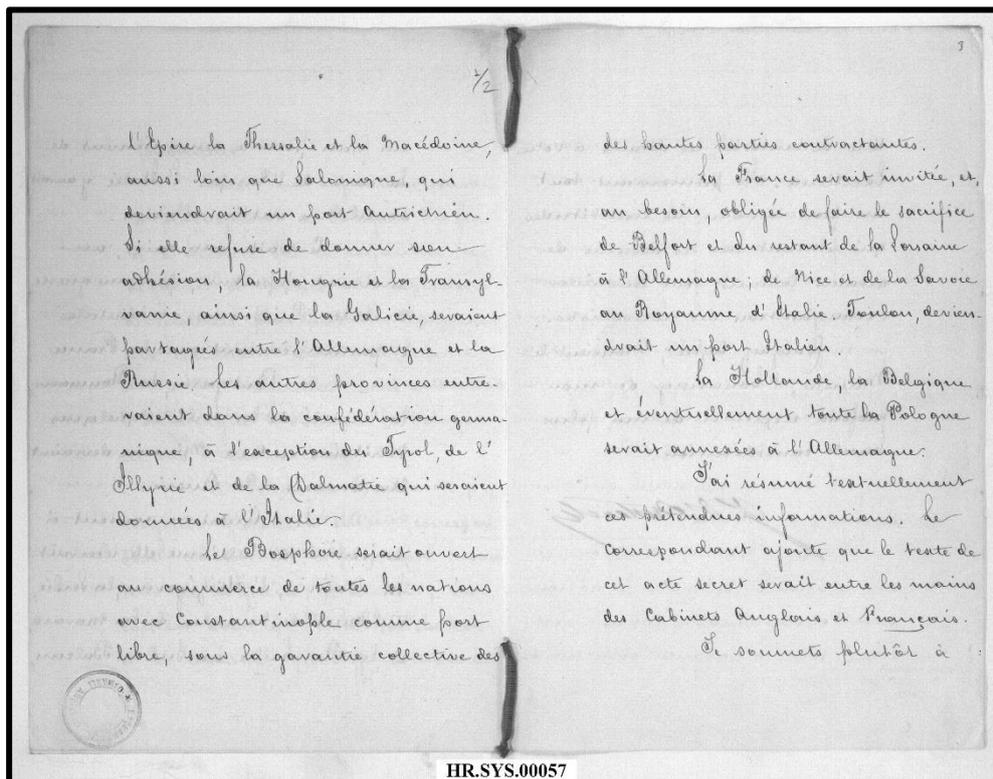 1/2
l'Epire la Thessalie et la Macédoine,
aussi loin que Salonique, qui
deviendrait un port Autrichien.
Si elle refuse de donner son
adhésion la Hongrie et la Transyl-
vanie, ainsi que la Galicie, seraient
partagées entre l'Allemagne et la
Russie les autres provinces entre-
raient dans la confédération germa-
nique, à l'exception du Tyrol, de l'
Illyrie et de la Dalmatie qui seraient
données à l'Italie.
Le Bosphore serait ouvert
au commerce de toutes les nations
avec Constantinople comme port
libre, sous la garantie collective des
3
des hautes parties contractantes.
La France serait invitée, et,
au besoin, obligée de faire le sacrifice
de Belfort et du restant de la Lorraine
à l'Allemagne; de Nice et de la Savoie
au Royaume d'Italie. Toulon, devien-
drait un port Italien.
La Hollande, la Belgique
et éventuellement toute la Pologne
serait annexées à l'Allemagne.
J'ai résumé textuellement
ces prétendues informations. Le
correspondant ajoute que le texte de
cet acte secret serait entre les mains
des Cabinets Anglais et Français.
Je soumets plutôt à
HR.SYS.00057